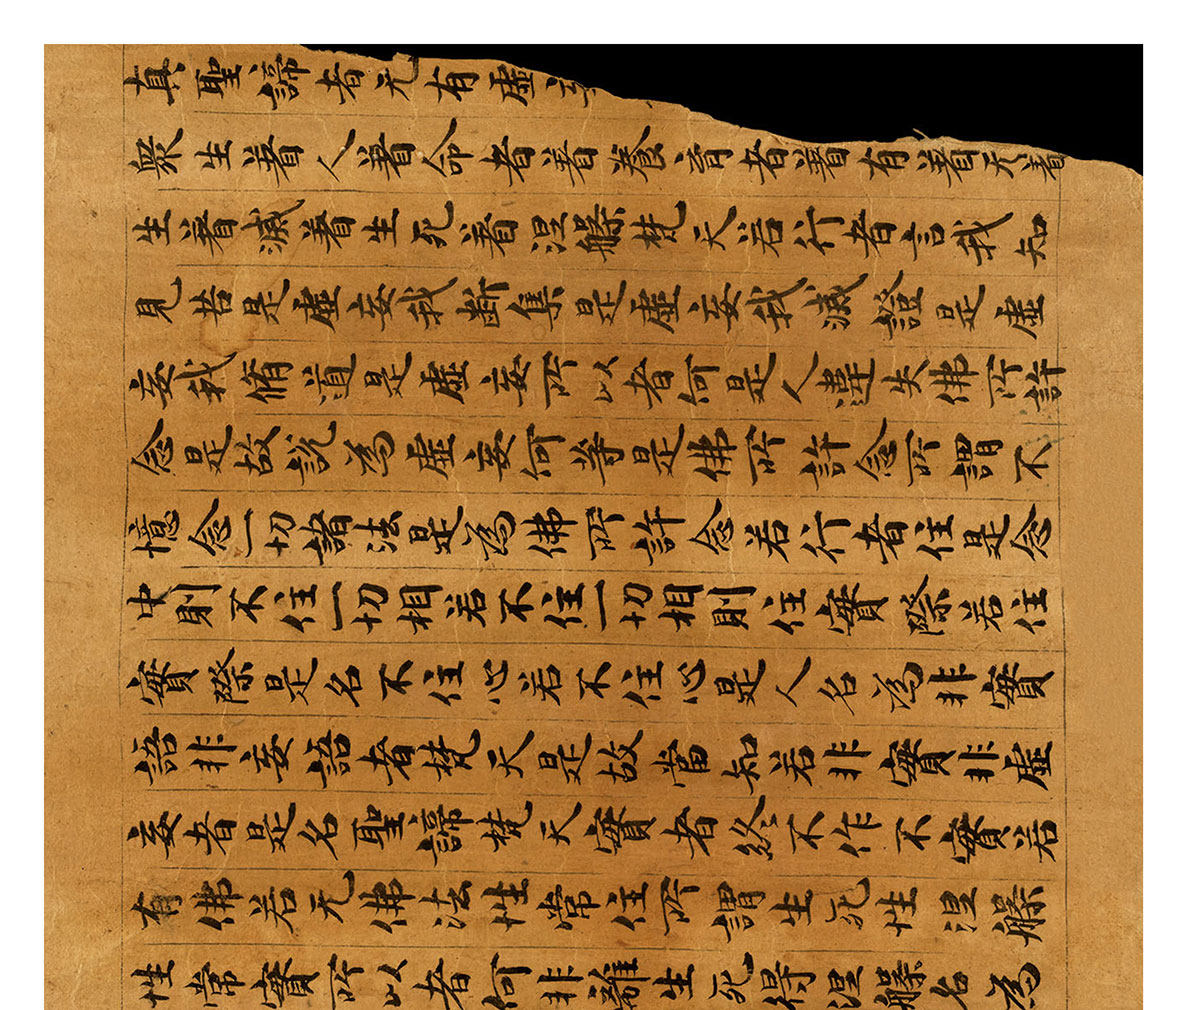 真聖諦者无有虛
衆生著人著命者著養育者著有著无著
生著滅著生死著涅槃梵天若行者言我知
見苦是虛妄我斷集是虛妄我滅證是虛
妄我脩道是虛妄所以者何是人違失佛所許
念是故説為虛妄何等是佛所許念所謂不
憶念一切諸法是為佛所許念若行者住是念
中則不住一切相若不住一切相則住實際若住
實際是名不住心若不住心是人名為非實
語非妄語者梵天是故當知若非實非虛
妄者是名聖諦梵天實者終不作不實若
有佛若无佛法性常住所謂生死性涅槃
性常實所以者何非離生死得涅槃名為